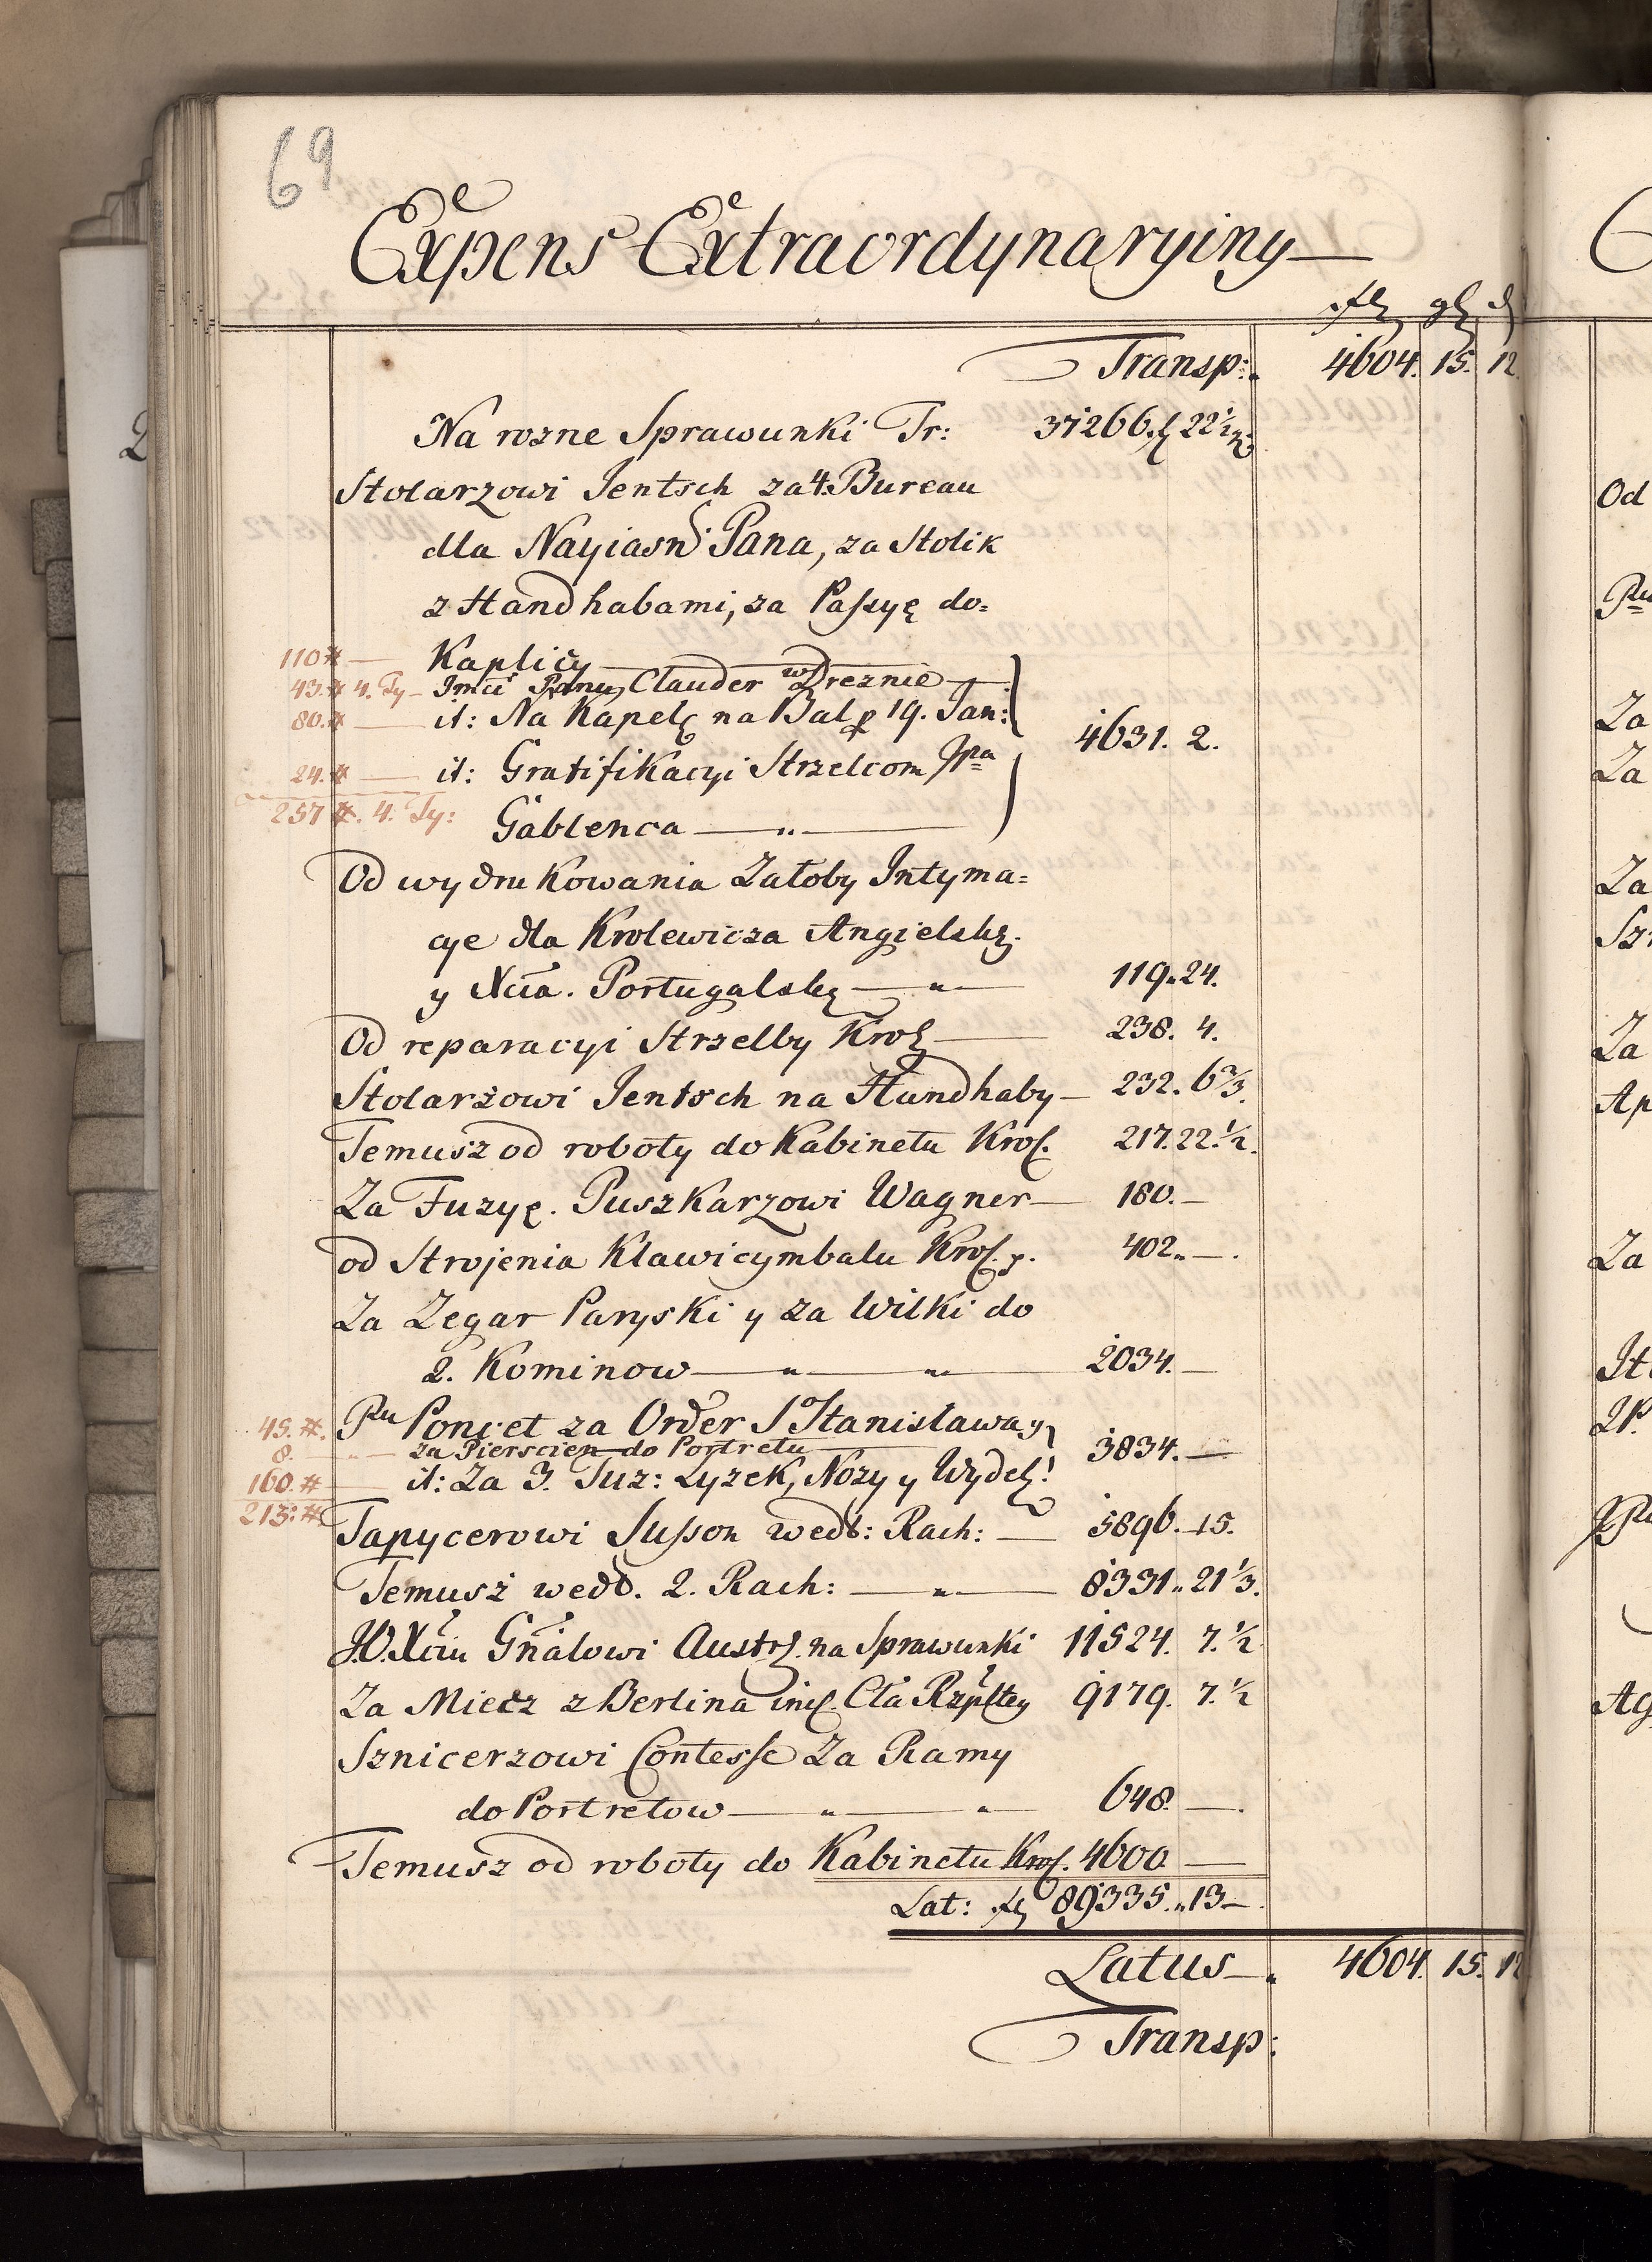 69
Expens Extraordynaryiny
fl gl d
Transp: 4604. 15. 12
Na rozne Sprawunki Tr: 37266. fl 22½
Stolarzowi Jentsch za 4. Bureau
dla Nayiasn: Pana, za Stolik
z Handhabami, za Passyę do=
110 # — Kaplicy
43. # 4. Ty — Imci Panu Clauder w Dreznie
80. # — it: Na Kapelę na Bal p 19. Jan:
4631. 2.
24. # — it: Gratifikacyi Strzelcom JPa
257 #. 4. Ty: Gablenca — „ —
Od wydrukowania Załoby Intyma=
cye dla Krolewicza Angielsk.
y Xcia. Portugalsk — „ — 119„ 24.
Od reparacyi Strzelby Krol — 238. 4.
Stolarzowi Jentsch na Handhaby — 232. 6⅔.
Temusz od roboty do Kabinetu Krol. 217. 22.½.
Za Fuzyę. Puszkarzowi Wagner — 180. —
od Strojenia Klawicymbalu Krol. 402„ —.
Za Zegar Paryski y za Wilki do
2. Kominow — „ — „ 2034. —
45. #. Pu Poncet za Order S Stanisława y
8. „ — za Pierscien do Portretu
3834. —
160. # — it: Za 3. Tuz: Łyzek, Nozy y Widel!
213: #
Tapycerowi Susson wedł: Rach: — 5896. 15.
Temusz wedł. 2. Rach: — „ — 8331„ 21⅓.
J.O. Xciu Gnałowi Austr. na Sprawunki 11524. 7.½
Za Miecz z Berlina incl. Cła Rzpltey 9179. 7.½
Sznicerzowi Contesse Za Ramy
do Portretow — „ — „ 648. —.
Temusz od roboty do Kabinetu Krol. 4600 —
Lat: fl 89335„ 13 —.
Latus — „ 4604. 15. 12
Transp:
Od
Za
Za
Za
Za
Ap
Za